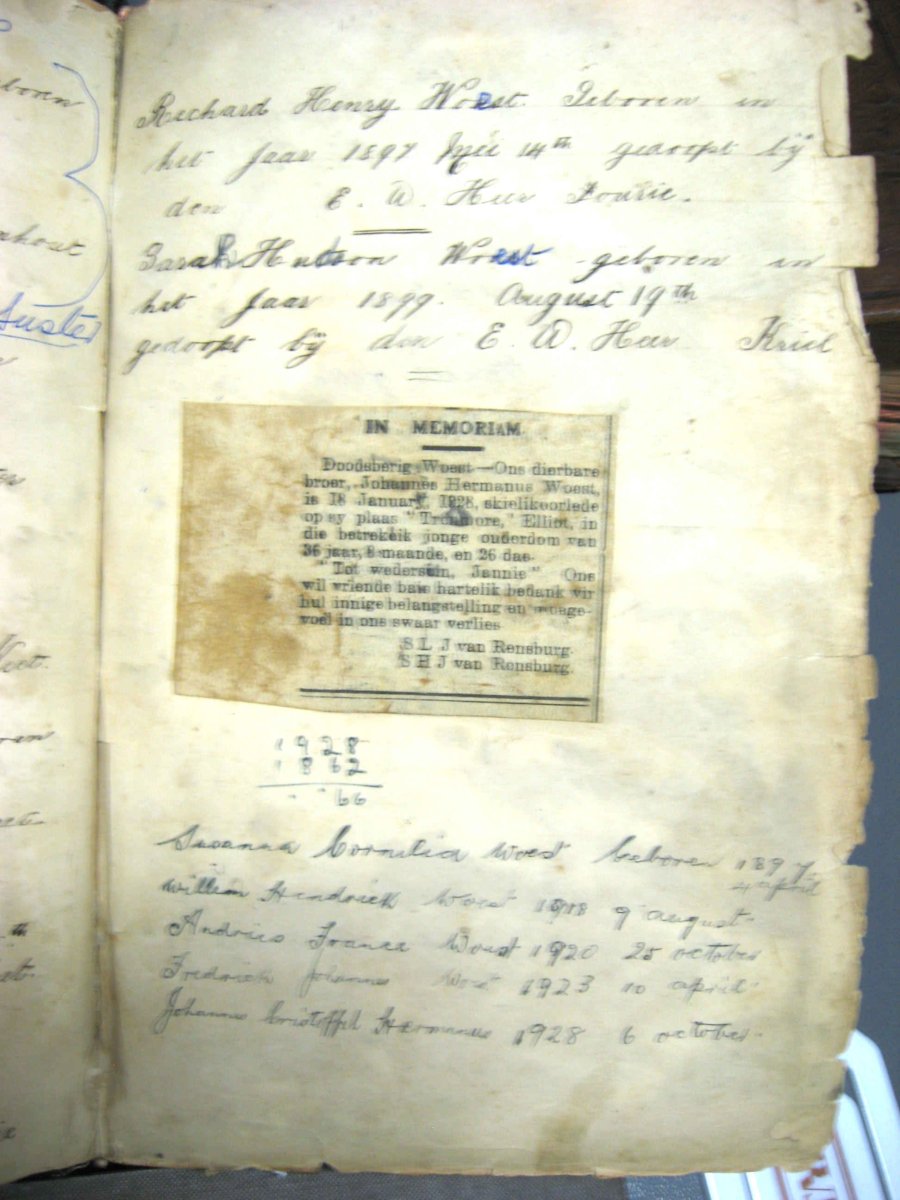 boren
Richard Henry Woest Geboren in
het Jaar 1897 14th gedoopt bÿ
den E. W. Heer Fourie.
nhout
Sarah Hutson Woest geboren in
het Jaar 1899. August 19th
Suster
gedoopt bÿ den E. W. Heer Kriel
IN MEMORIAM
Doodsberig Woest—Ons dierbare
broer, Johannes Hermanus Woest,
is 18 January, 1928, skielik oorlede
op sy plaas "Trenmore," Elliot, in
die betreklik jonge ouderdom van
36 jaar, 8 maande, en 26 dae.
"Tot wedersein, Jannie" Ons
wil vriende baie hartelik bedank vir
hul innige belangstelling en meege-
voel in ons swaar verlies
S L J van Rensburg.
S H J van Rensburg.
1928
1862
66
Susanna Cornelia Woest Geboren 1897
4 april
Willem Hendrick Woest 1918 9 august
Andries Woest 1920 25 october
Fredrick Johannes Woest 1923 10 april
Johannes Cristoffel Hermanus 1928 6 october